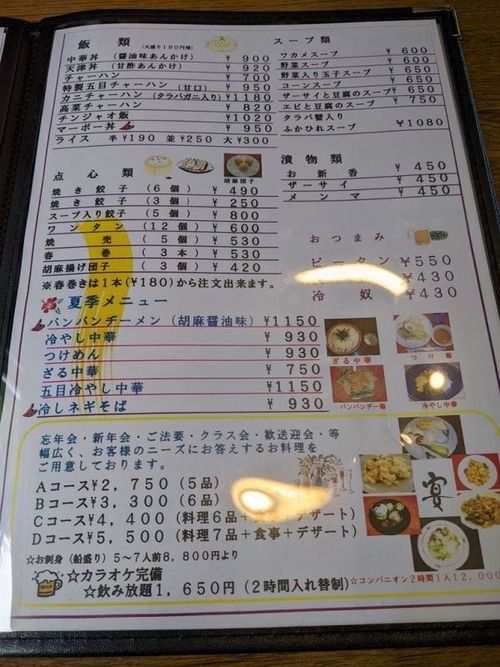 飯類 (大盛り180円増)
中華丼 (醤油味あんかけ) ¥900
天津丼 (甘酢あんかけ) ¥920
チャーハン ¥700
特製五目チャーハン (甘口) ¥950
カニチャーハン (タラバガニ入り) ¥1180
高菜チャーハン ¥820
チンジャオ飯 ¥1020
マーボー丼 ¥950
ライス 半¥190 並¥250 大¥300
スープ類
ワカメスープ ¥600
野菜スープ ¥600
野菜入り玉子スープ ¥650
コーンスープ ¥650
ザーサイと豆腐のスープ ¥650
エビと豆腐のスープ ¥750
タラバ蟹入り
ふかひれスープ ¥1080
点心類
胡麻団子
焼き餃子 (6個) ¥490
焼き餃子 (3個) ¥250
スープ入り餃子 (5個) ¥800
ワンタン (12個) ¥600
焼売 (5個) ¥530
春巻 (3本) ¥530
胡麻揚げ団子 (3個) ¥420
※春巻きは1本(¥180)から注文出来ます。
漬物類
お新香 ¥450
ザーサイ ¥450
メンマ ¥450
おつまみ
ピータン ¥550
¥430
冷奴 ¥430
夏季メニュー
バンバンチーメン (胡麻醤油味) ¥1150
冷やし中華 ¥930
つけめん ¥930
ざる中華 ¥750
五目冷やし中華 ¥1150
冷しネギそば ¥930
ざる中華
つけ麺
バンバンヂー麺
冷やし中華
忘年会・新年会・ご法要・クラス会・歓送迎会・等
幅広く、お客様のニーズにお答えするお料理を
ご用意しております。
Aコース¥2,750 (5品)
Bコース¥3,300 (6品)
Cコース¥4,400 (料理6品+食事+デザート)
Dコース¥5,500 (料理7品+食事+デザート)
☆お刺身 (船盛り) 5〜7人前8,800円より
☆カラオケ完備
☆飲み放題1,650円 (2時間入れ替制)
☆コンパニオン2時間1人12,000
宴